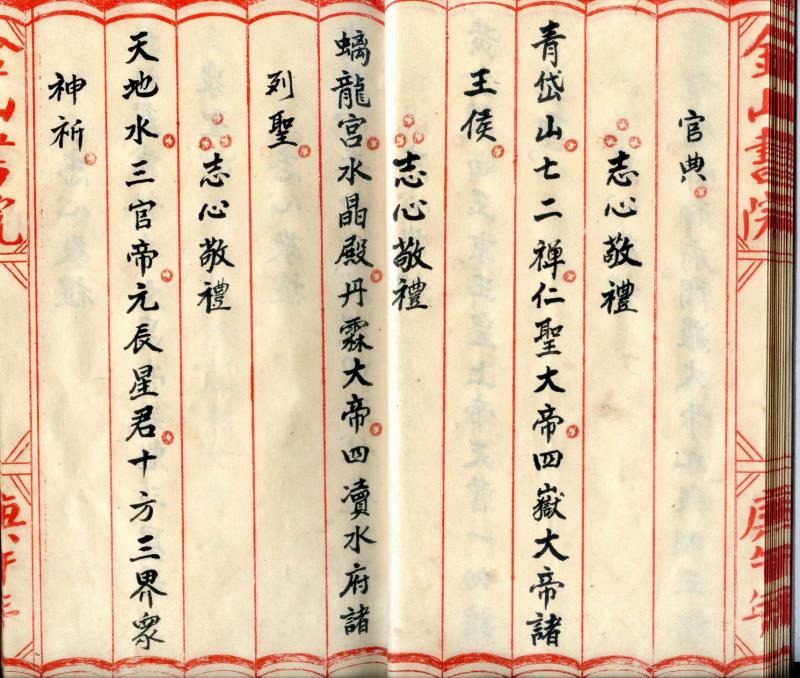 金山書院
庚午年
官典
志心敬禮
青岱山七二禅仁聖大帝四嶽大帝諸
王侯
志心敬禮
螭龍宮水晶殿丹霖大帝四瀆水府諸
列聖
志心敬禮
天地水三官帝元辰星君十方三界眾
神祈
金山書院
庚午年